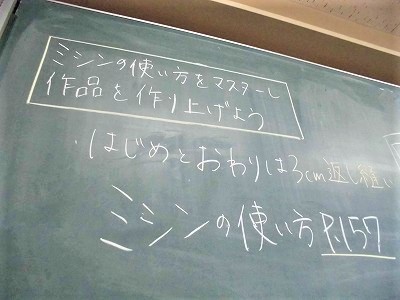 ミシンの使い方をマスターし
作品を作り上げよう
・はじめとおわりは3cm返し縫い
ミシンの使い方 P.157